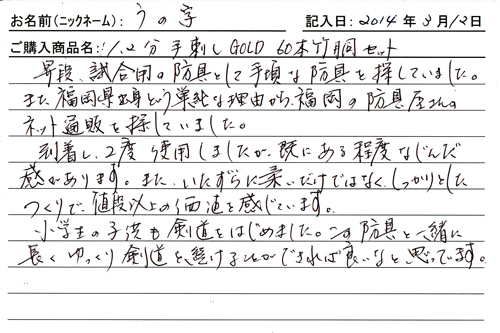 お名前(ニックネーム): うの字 記入日: 2014年3月12日
ご購入商品名: 1.2分手刺しGOLD 60本竹胴セット
昇段、試合用の防具として手頃な防具を探していました。
また福岡県出身という単純な理由から、福岡の防具屋さんの
ネット通販を探していました。
到着し、2度使用しましたが、既にある程度なじんだ
感があります。また、いたずらに柔いだけではなく、しっかりとした
つくりで、値段以上の価値を感じています。
小学生の子供も剣道をはじめました。この防具と一緒に
長くゆっくり剣道を続けることができれば良いなと思っています。